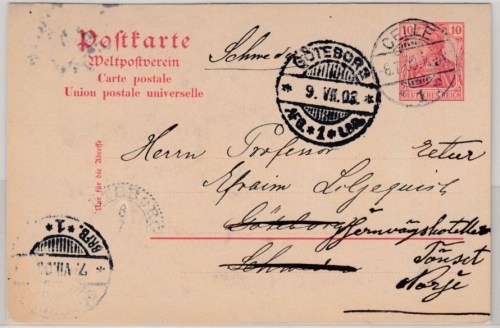 Postkarte
Weltpostverein
Carte postale
Union postale universelle
Nur für die Adresse
10 10
DEUTSCHES REICH
CELLE
GÖTEBORG
9. VII. 03.
AFG. * 1 * LBR.
GÖTEBORG
BRFB. * 1 *
7. VII. 03
Herrn Professor
Efraim Liljequist
Göteborg
Jernvägshotellet
Tönset
Norge